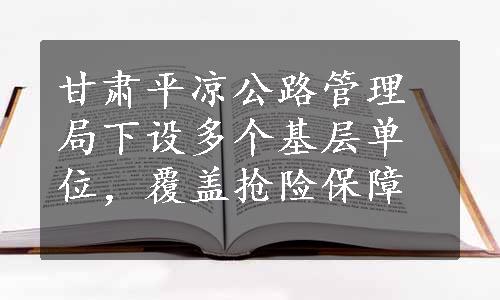 甘肃平凉公路管理
局下设多个基层单
位，覆盖抢险保障